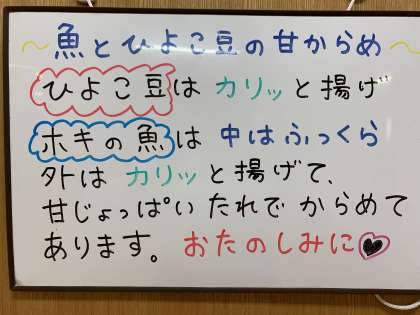 ～魚とひよこ豆の甘からめ～
ひよこ豆は カリッと揚げ
ホキの魚は 中はふっくら
外は カリッと揚げて、
甘じょっぱい たれで からめて
あります。 おたのしみに♥